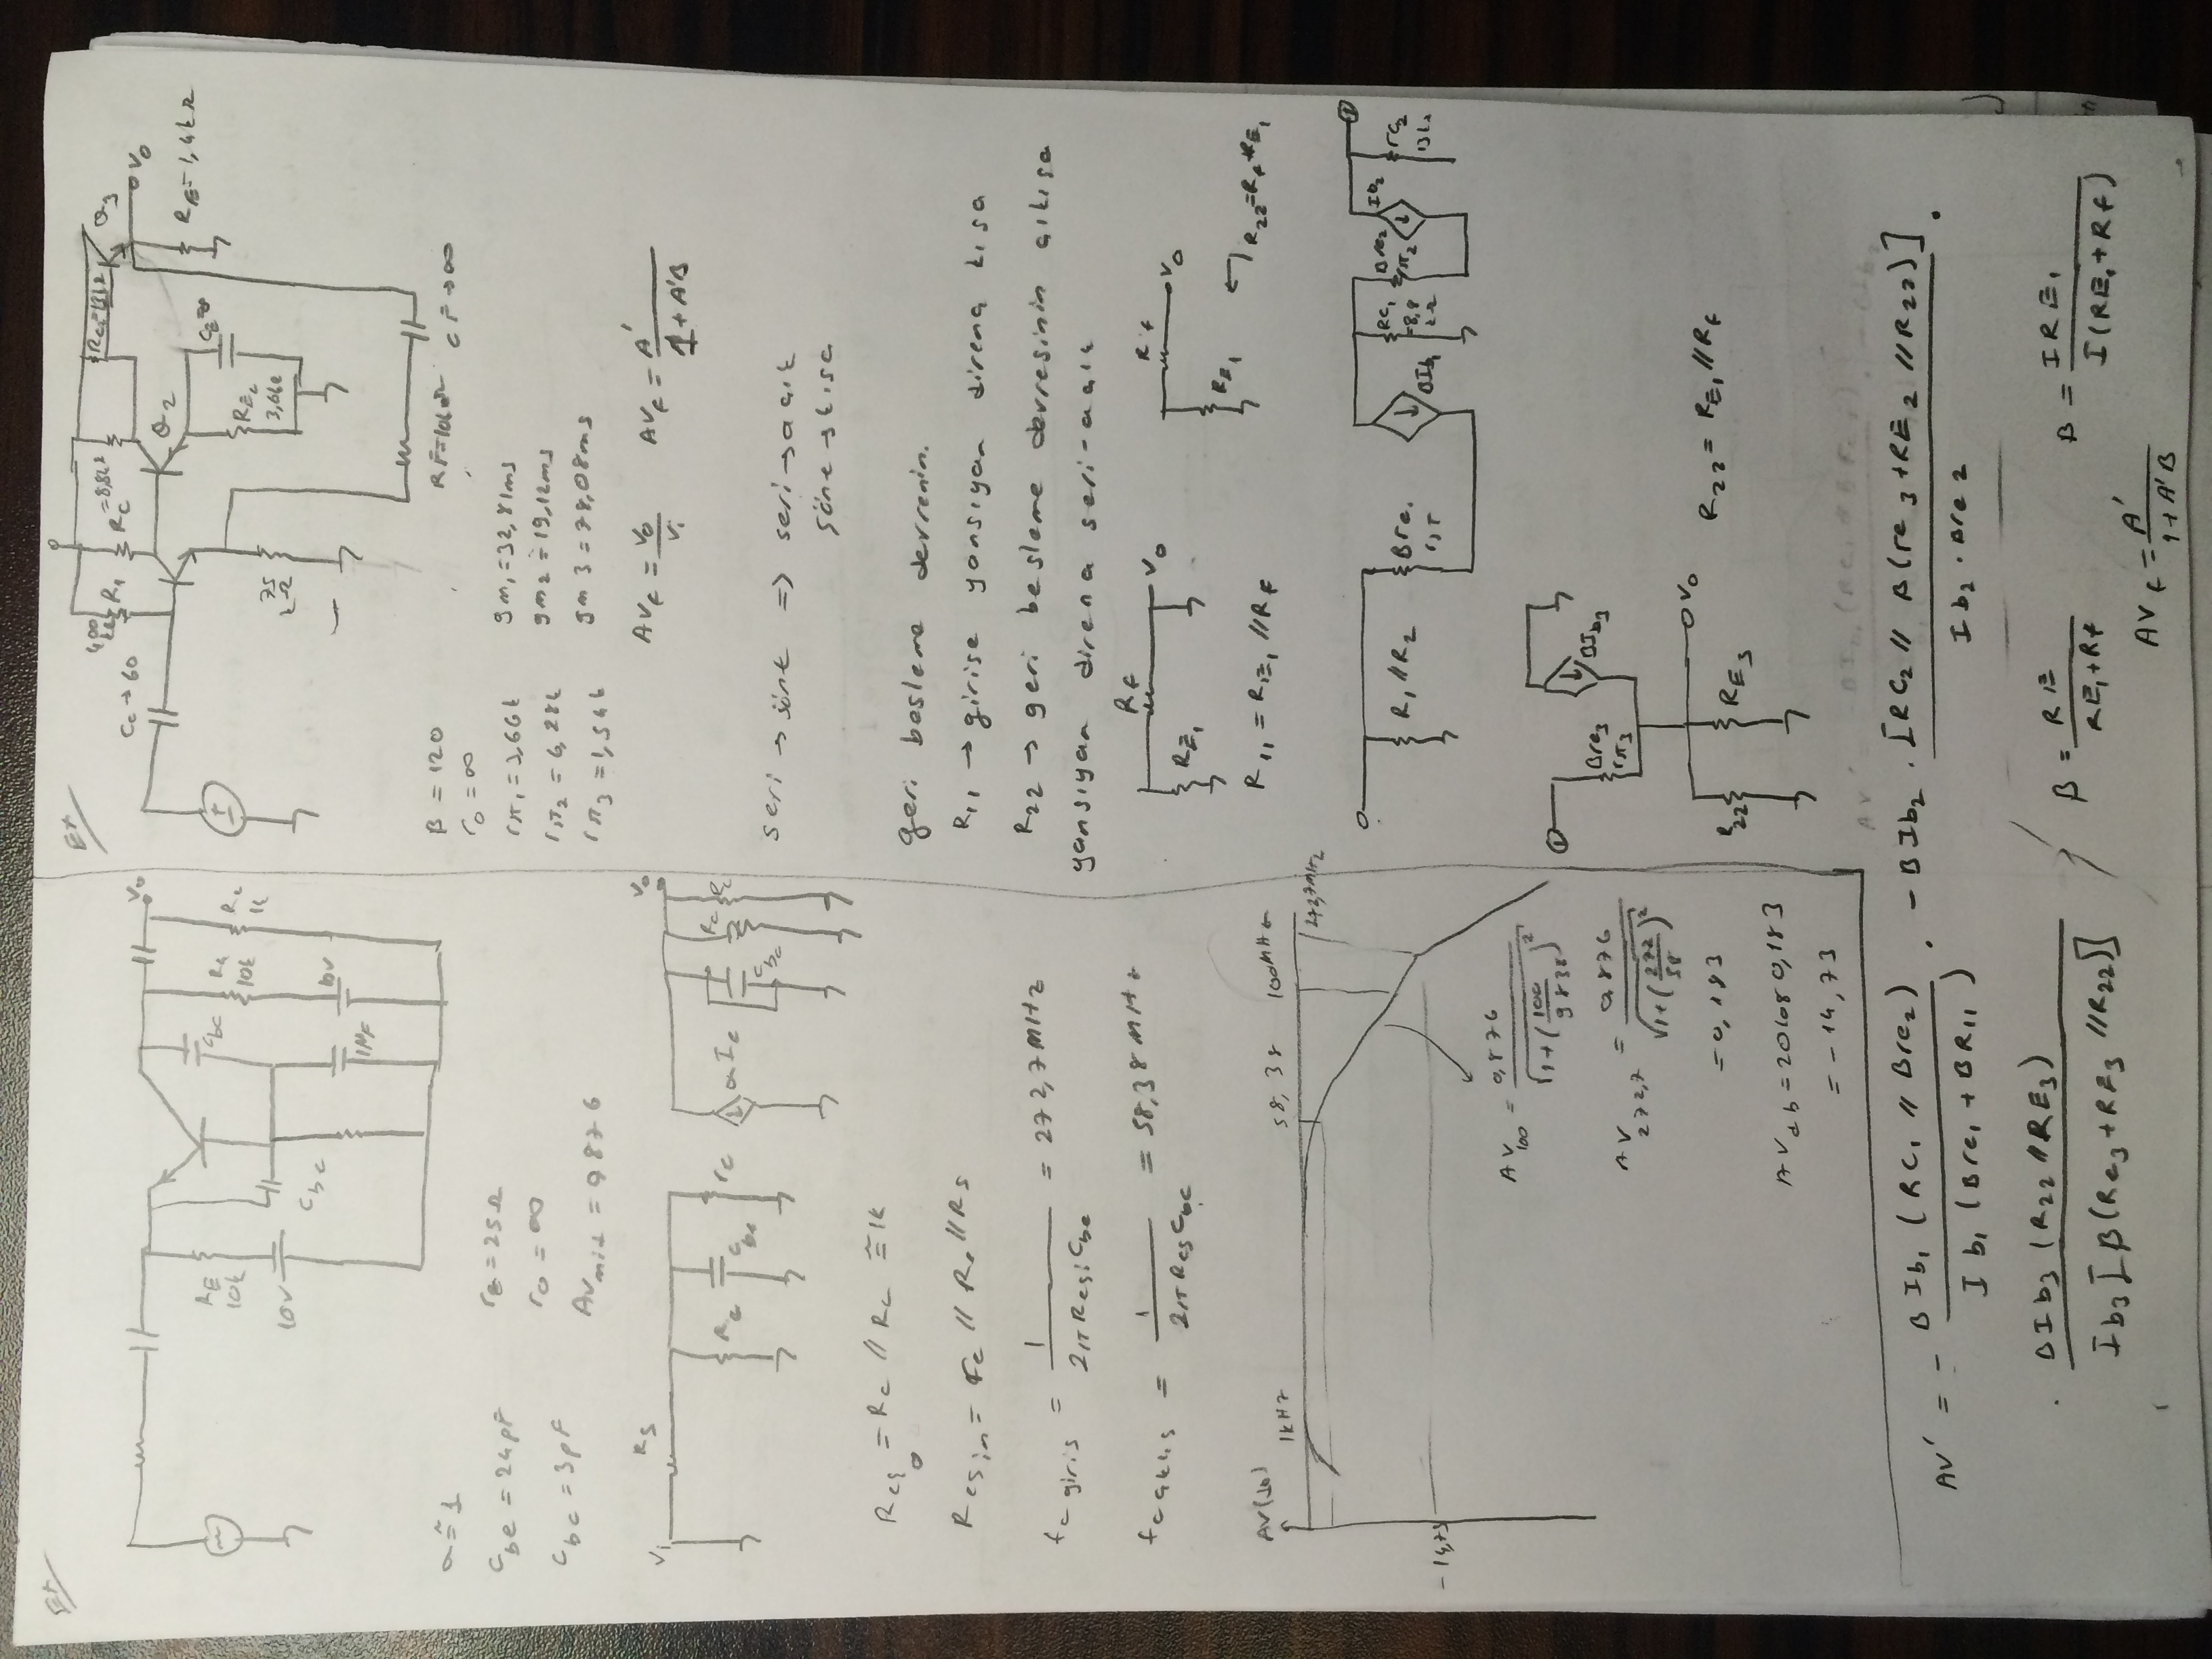 Ex
RE
10k
10V
Cbe
Cbc
1MF
10k
10V
RL
1k
Vo
α ≅ 1
Cbe = 24pF
Cbc = 3pF
re = 25Ω
ro = ∞
Avmid = 0,876
Vi
Rs
Re
Cbe
re
αIe
Cbc
Rc
RL
Vo
Reqo = Rc // RL ≅ 1k
Reqin = re // Re // Rs
fc giris = 1 / 2πReqiCbe = 272,7MHz
fc çıkış = 1 / 2πReqCbc = 58,38MHz
AV(dB)
1kHz
58,38
100MHz
272,7MHz
-14,73
AV100 = 0,876 / √1+(100/5838)²
AV272,7 = 0,876 / √1+(272/58)²
= 0,183
AVdb = 20log0,183
= -14,73
Ex
Cc→60
400
kΩ
R1
RC=8,8kΩ
RC2=13kΩ
Q3
Vo
RE=1,4kΩ
Q2
CE=∞
RE2
3,6kΩ
75
kΩ
RF=10kΩ
CF→∞
β = 120
ro = ∞
rπ1 = 3,66k
rπ2 = 6,28k
rπ3 = 1,54k
gm1 = 32,81ms
gm2 = 19,12ms
gm3 = 78,08ms
AVf = Vo / Vi
AVf = A' / 1+A'B
seri → şönt => seri → açık
şönt → kısa
geri besleme devrenin.
R11 → girişe yansıyan direnç kısa
R22 → geri besleme devresinin çıkışa
yansıyan direnç seri-açık
Rf
Vo
RE1
R11 = RE1 // Rf
Rf
Vo
RE1
R22=Rf+RE1
R1 // R2
Bre1
rπ
BIb1
RC1
=8,8
kΩ
Bre2
rπ2
Ib2
rC2
13k
1
1
Bre3
rπ3
BIb3
Vo
R22
RE3
R22 = RE1 // Rf
AV' = - BIb1 (RC1 // Bre2) / Ib1 (Bre1 + BR11) . -BIb2 . [RC2 // β(re3 + RE2 // R22)] / Ib2 . Bre2 .
. BIb3 (R22 // RE3) / Ib3 [β(Re3 + RE3 // R22)]
β = RE / RE1+Rf
B = IRE1 / I(RE1+Rf)
AVf = A' / 1+A'B